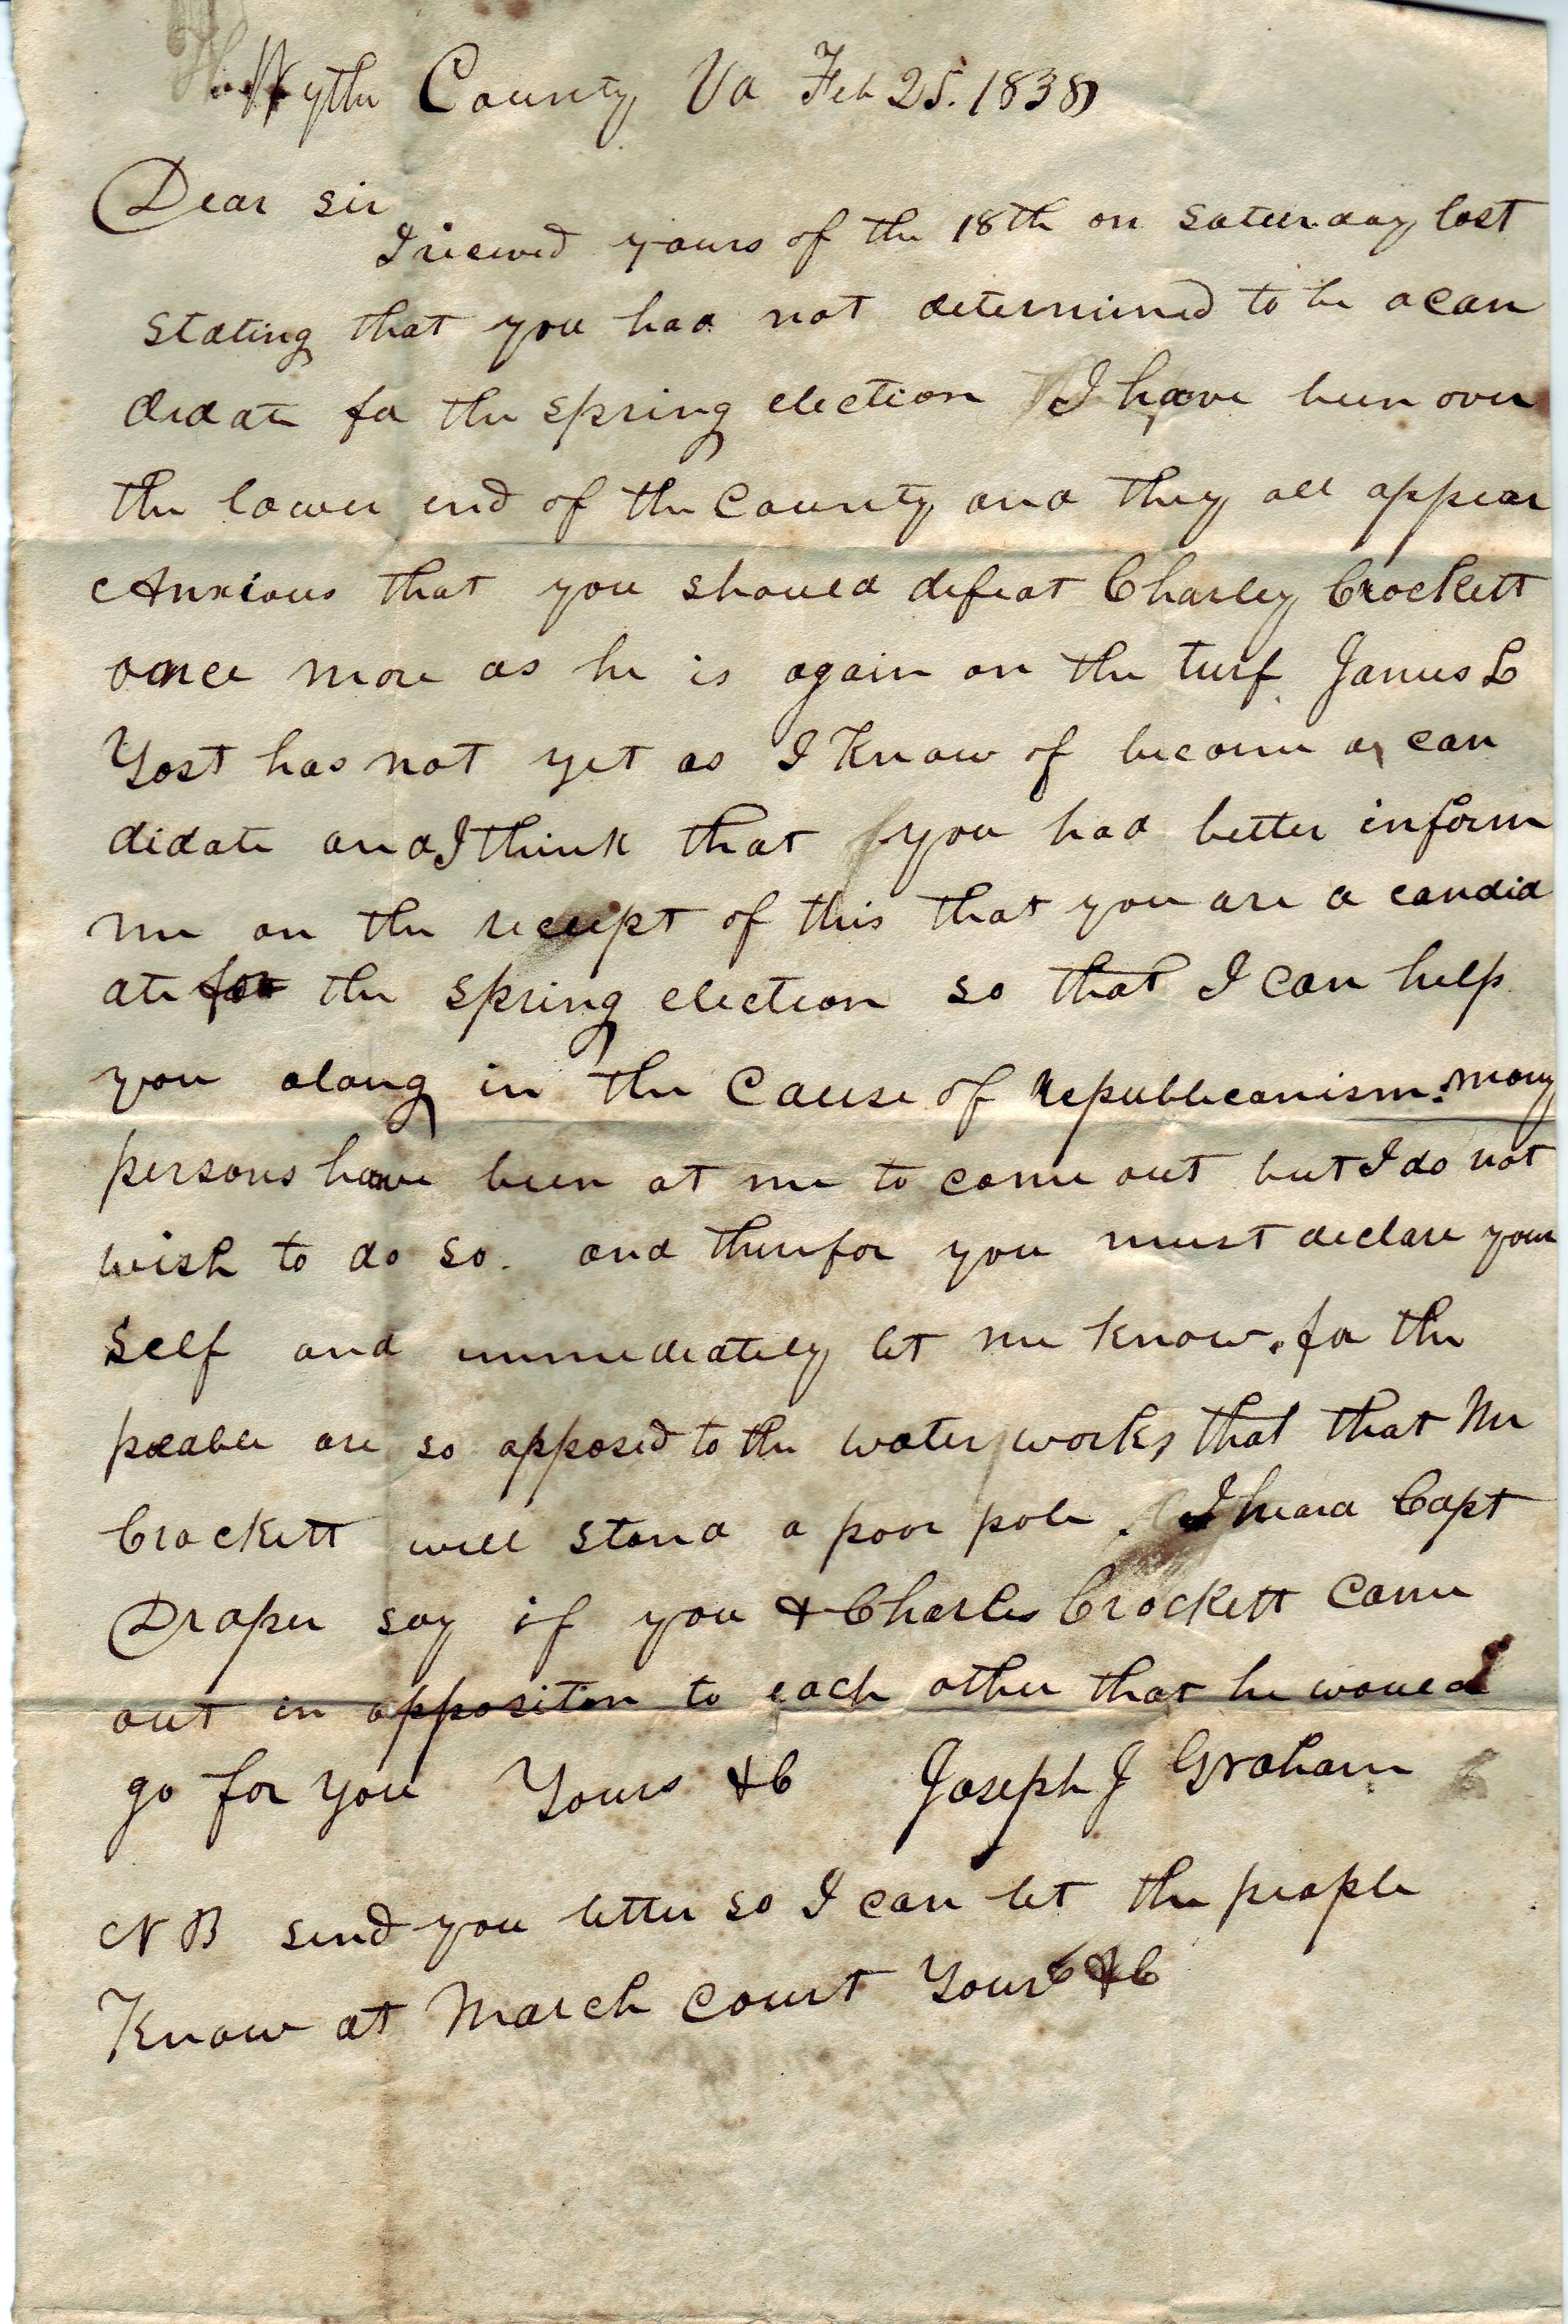 Wythe County Va Feb 25. 1838
Dear sir
I recived yours of the 18th on saturday last
stating that you had not determined to be a can
didate for the spring election I have been over
the lower end of the County and they all appear
Anxious that you should defeat Charley Crockett
once more as he is again on the turf James L
Yost has not yet as I Know of become a can
didate and I think that you had better inform
me on the receipt of this that you are a candid
ate for the spring election so that I can help
you along in the Cause of Republicanism. many
persons have been at me to come out but I do not
wish to do so. and therefor you must declare your
self and immediately let me know. for the
peable are so opposed to the water works that that Mr
Crockett will stand a poor pole. I heard Capt
Draper say if you & Charles Crockett came
out in oppositon to each other that he would
go for you Yours &C Joseph J Graham
N B send you letter so I can let the people
Know at March court Yours &C